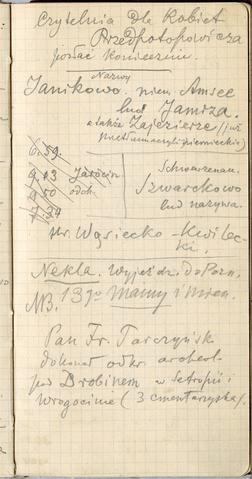 Czytelnia dla Kobiet
Przedpotopowicza
posłać koniecznie.
Nazwy
Janikowo. niem. Amsee
lud Jamrza.
a także Zajezierze (już
6.59
9 13 Jarocin
4 50 odch.
7 34
Schwarzenau.
Szwarckowo
lud nazywa.
hr. Węsiecko-Kwilec-
ki.
Nekla. Wyjeżdż. do Pozn.
NB. 13go Mamy i Mien.
Pan Fr. Tarczyńsk
dokonał odkr. archeol.
pod Drobinem w Setropii i
Wrogocinie (3 cmentarzyska).